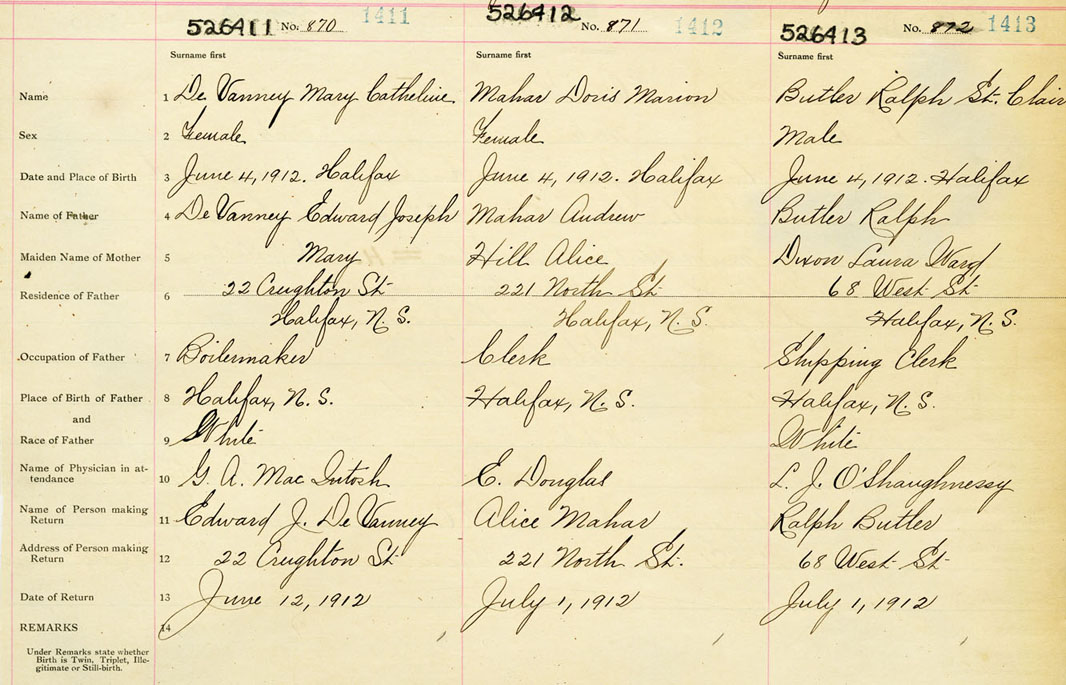 526411 No. 870 1411 526412 No. 871 1412 526413 No. 872 1413
Surname first Surname first Surname first
Name 1 De Vanney Mary Catheline Mahar Doris Marion Butler Ralph St. Clair
Sex 2 Female Female Male
Date and Place of Birth 3 June 4, 1912. Halifax June 4, 1912. Halifax June 4, 1912. Halifax
Name of Father 4 De Vanney Edward Joseph Mahar Andrew Butler Ralph
Maiden Name of Mother 5 Mary Hill Alice Dixon Laura Ward
Residence of Father 6 22 Creighton St 221 North St 68 West St
Halifax, N. S. Halifax, N. S. Halifax, N. S.
Occupation of Father 7 Boilermaker Clerk Shipping Clerk
Place of Birth of Father 8 Halifax, N. S. Halifax, N. S. Halifax, N. S.
and
Race of Father 9 White White
Name of Physician in at-
tendance 10 G. A. Mac Intosh E. Douglas L. J. O'Shaughnessy
Name of Person making
Return 11 Edward J. De Vanney Alice Mahar Ralph Butler
Address of Person making
Return 12 22 Creighton St 221 North St. 68 West St
Date of Return 13 June 12, 1912 July 1, 1912 July 1, 1912
REMARKS 14
Under Remarks state whether
Birth is Twin, Triplet, Ille-
gitimate or Still-birth.